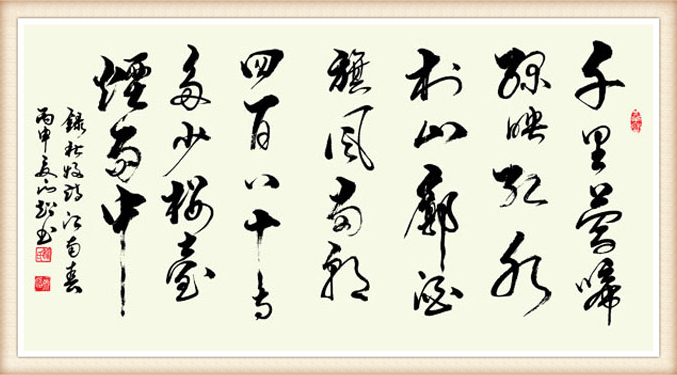 千里莺啼
绿映红水
村山廓酒
旗风南朝
四百八十寺
多少楼臺
煙雨中
録杜牧诗江南春
丙申夏 书